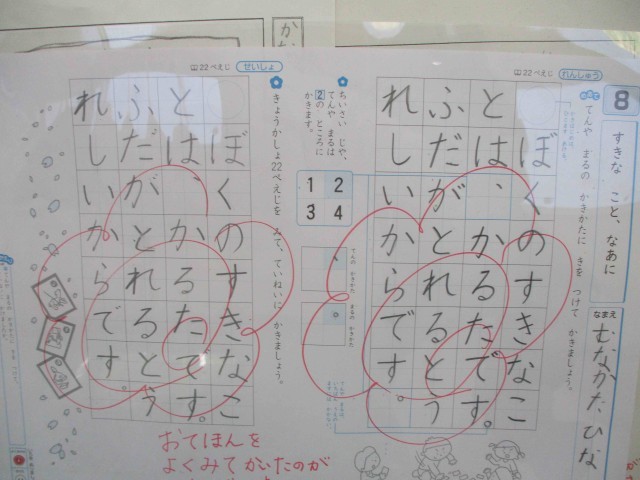 8
すきな こと、なあに
なまえ
むなかた ひな
22ぺえじ れんしゅう
てんや まるの かきかたに きを つけて かきましょう。
ぼくのすきなこ
とは、かるたです。
ふだがとれるとう
れしいからです。
ちいさい じや、
てんや まるは
2の ところに
かきます。
1 2
3 4
てんの かきかた
まるの かきかた
22ぺえじ せいしょ
きょうかしょ22ぺえじを みて、ていねいに かきましょう。
ぼくのすきなこ
とは、かるたです。
ふだがとれるとう
れしいからです。
おてほんを
よくみてかいたのが